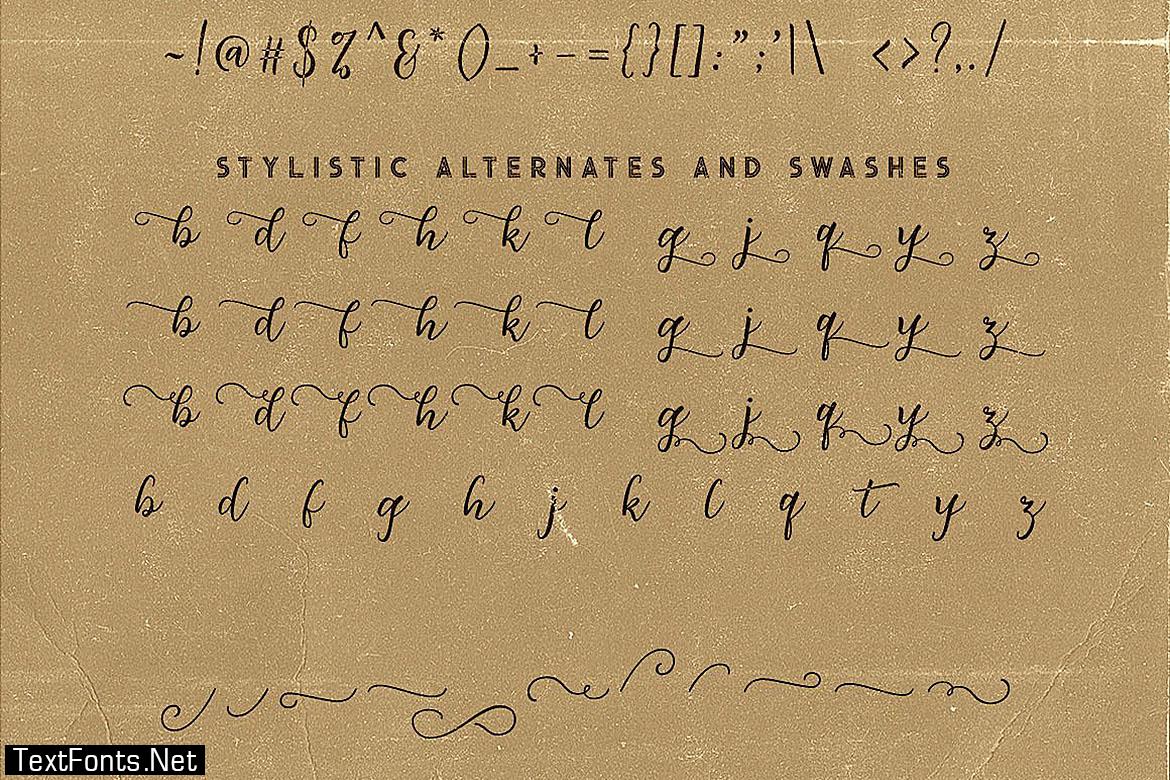 ~!@#$%^&*()_+-={}[]:";'|\ <>?,./
STYLISTIC ALTERNATES AND SWASHES
b d f h k l g j q y z
b d f h k l g j q y z
b d f h k l g j q y z
b d f g h j k l q t y z
TextFonts.Net